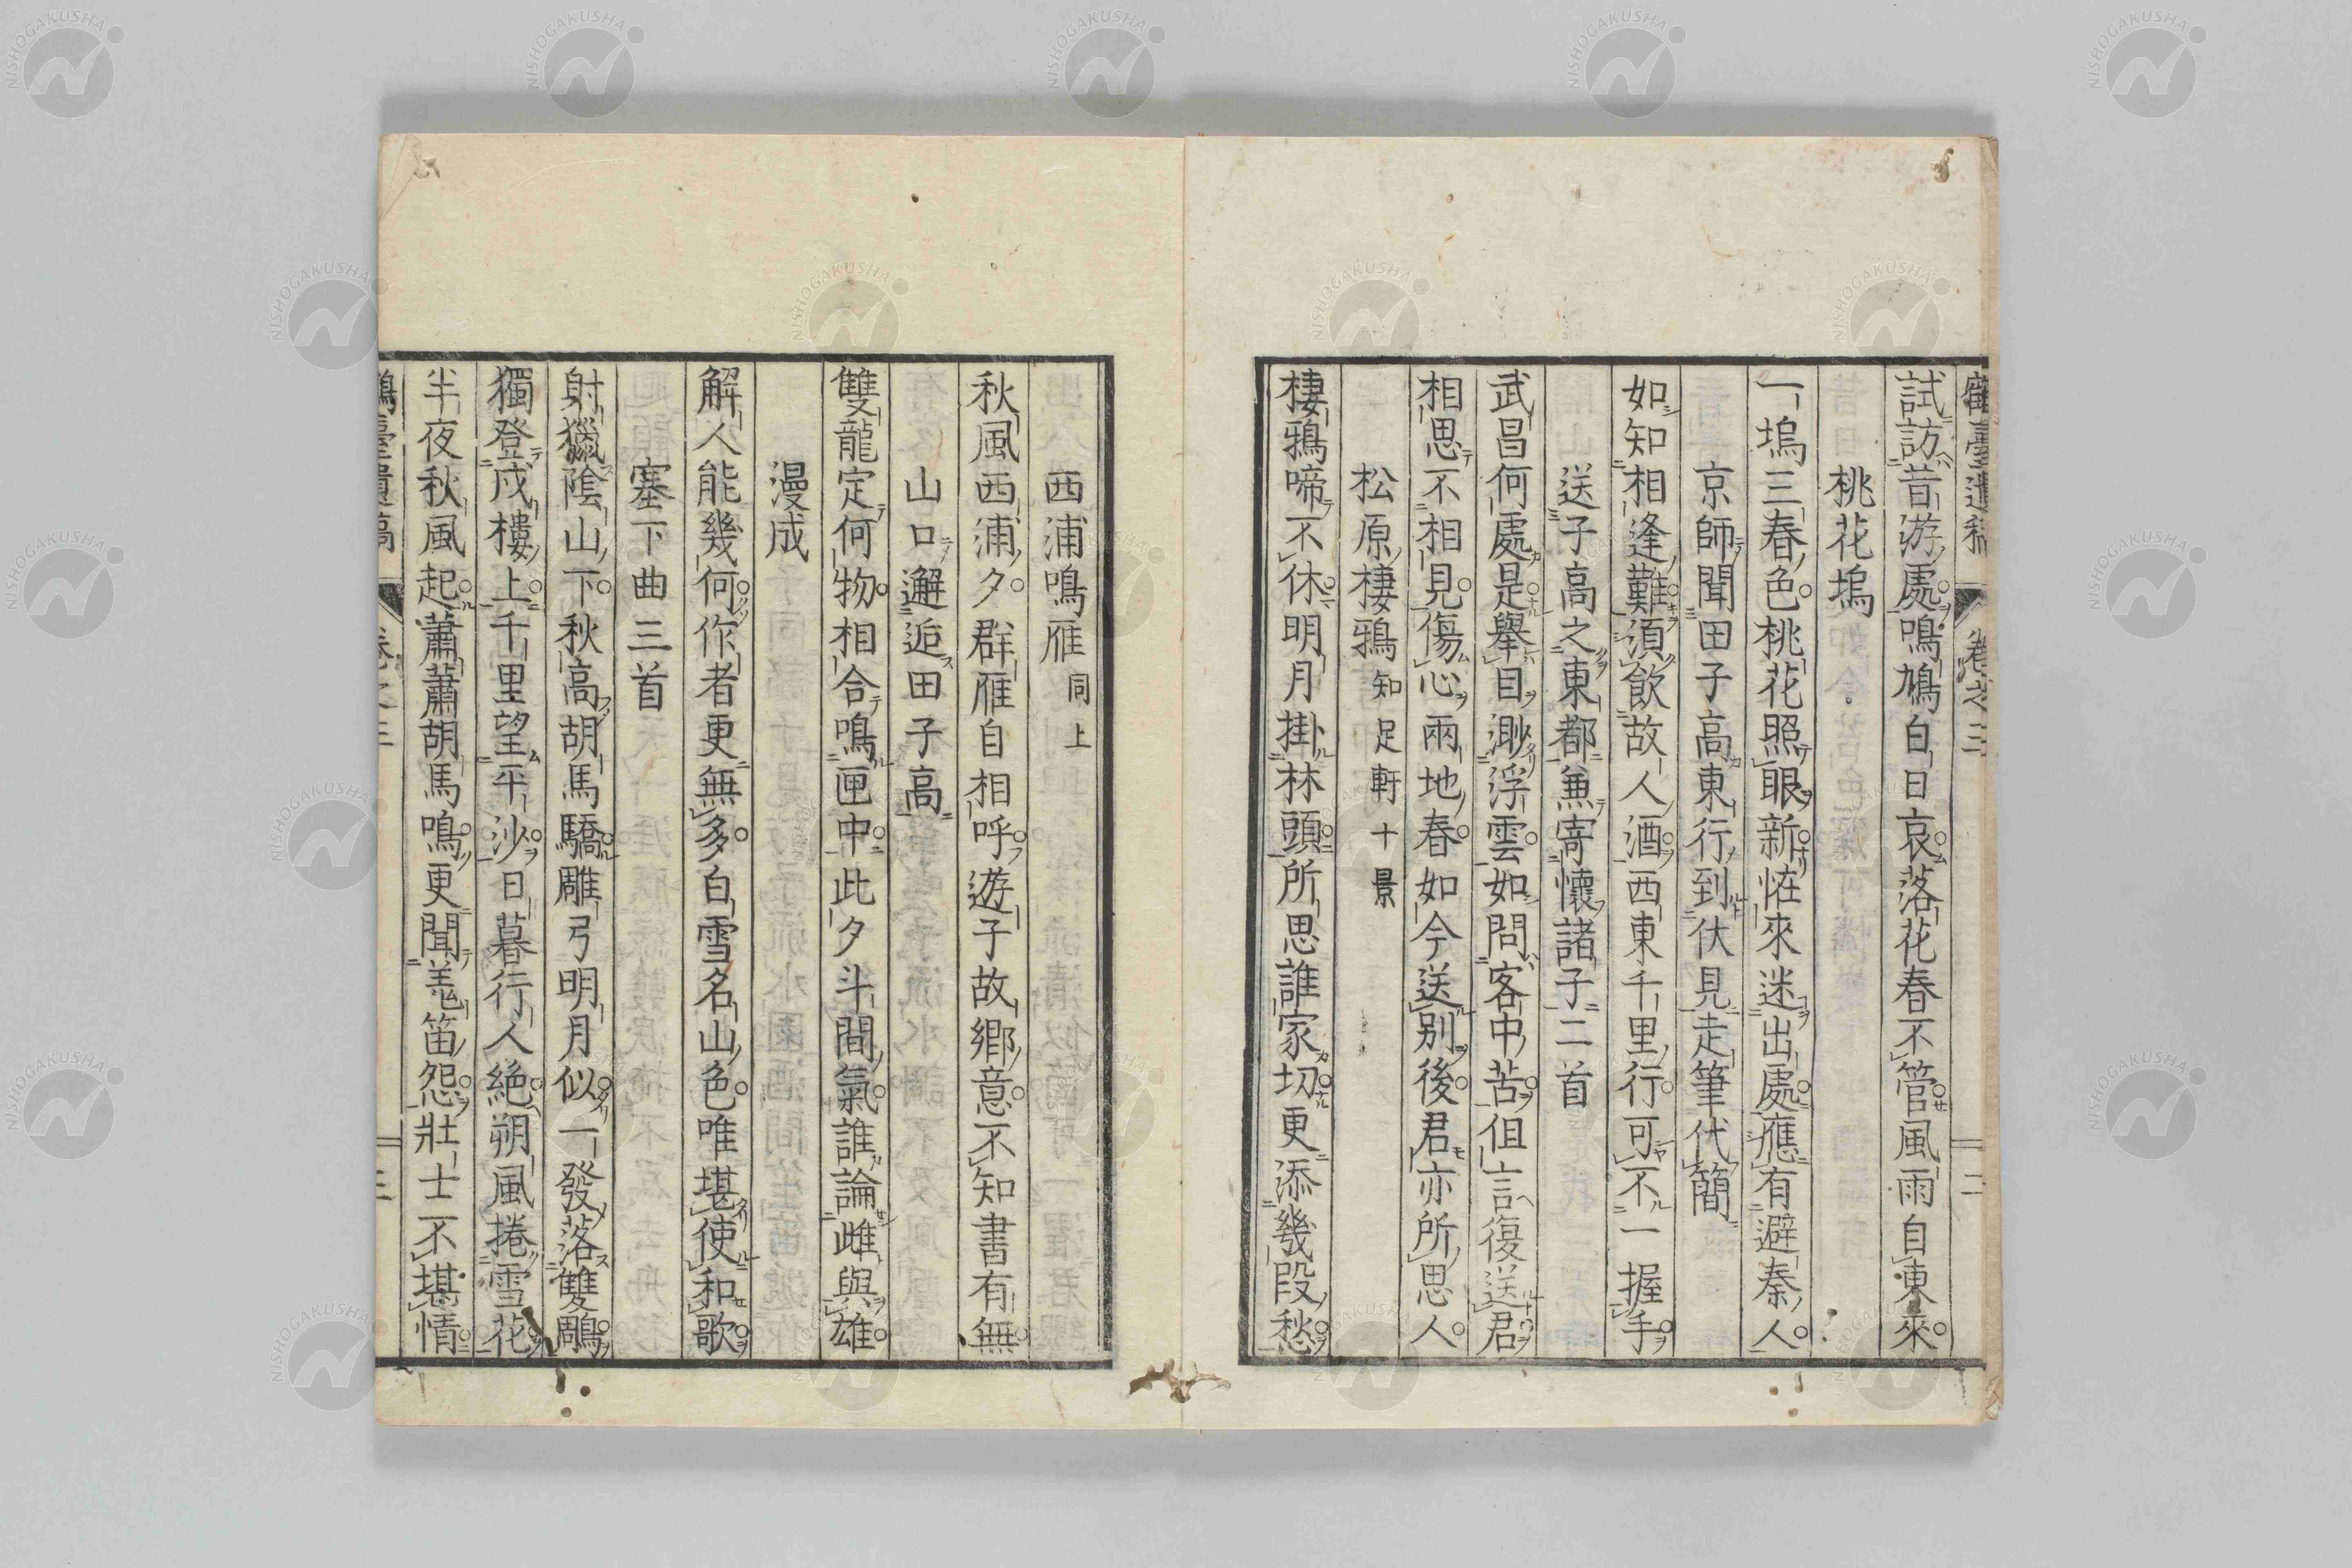 試訪昔游處鳴鳩白日哀落花春不管風雨自東來
桃花塢
一塢三春色桃花照眼新恠來迷出處應有避秦人
京師聞田子高東行到伏見走筆代簡
如知相逢難須飲故人酒西東千里行可不一握手
送子高之東都兼寄懷諸子二首
武昌何處是舉目渺浮雲如問客中苦但言復送君
相思不相見傷心兩地春如今送別後君亦所思人
松原棲鴉知足軒十景
棲鴉啼不休明月掛林頭所思誰家切更添幾段愁
卷之三
二
西浦鳴雁同上
秋風西浦夕群雁自相呼遊子故鄉意不知書有無
山口邂逅田子高
雙龍定何物相合鳴匣中此夕斗間氣誰論雌與雄
漫成
解人能幾何作者更無多白雪名山色唯堪使和歌
塞下曲三首
射獵陰山下秋高胡馬驕雕弓明月似一發落雙鵰
獨登戍樓上千里望平沙日暮行人絕朔風捲雪花
半夜秋風起蕭蕭胡馬鳴更聞羌笛怨壯士不堪情
NISHOGAKUSHA